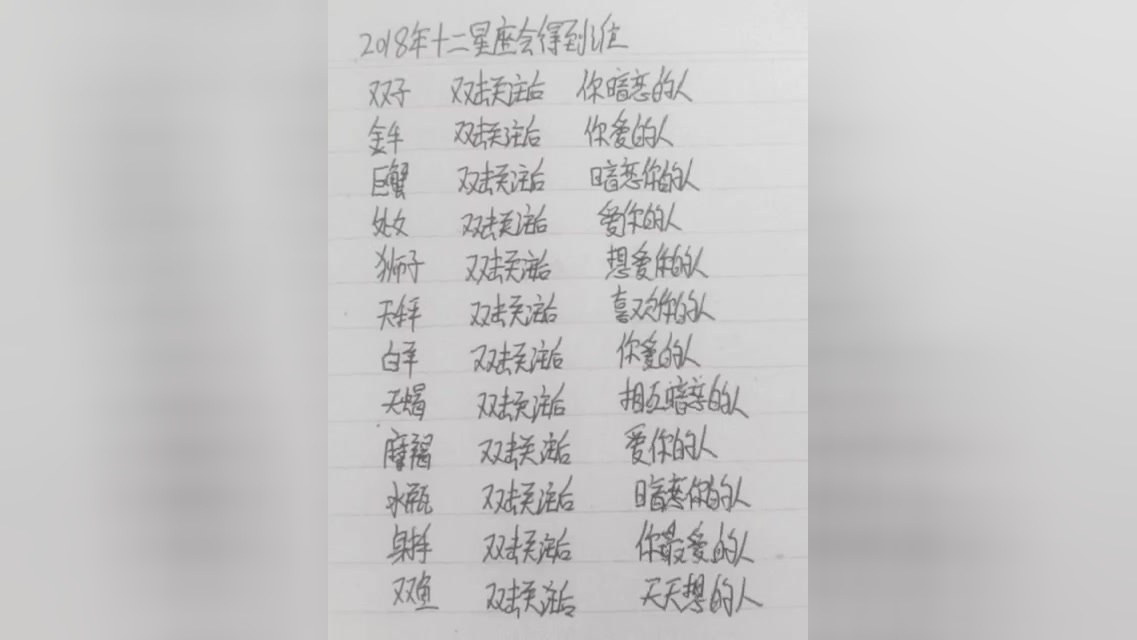 2018年十二星座会得到谁
双子 双击关注后 你暗恋的人
金牛 双击关注后 你爱的人
巨蟹 双击关注后 暗恋你的人
处女 双击关注后 爱你的人
狮子 双击关注后 想爱你的人
天秤 双击关注后 喜欢你的人
白羊 双击关注后 你爱的人
天蝎 双击关注后 相互暗恋的人
摩羯 双击关注后 爱你的人
水瓶 双击关注后 暗恋你的人
射手 双击关注后 你最爱的人
双鱼 双击关注后 天天想的人